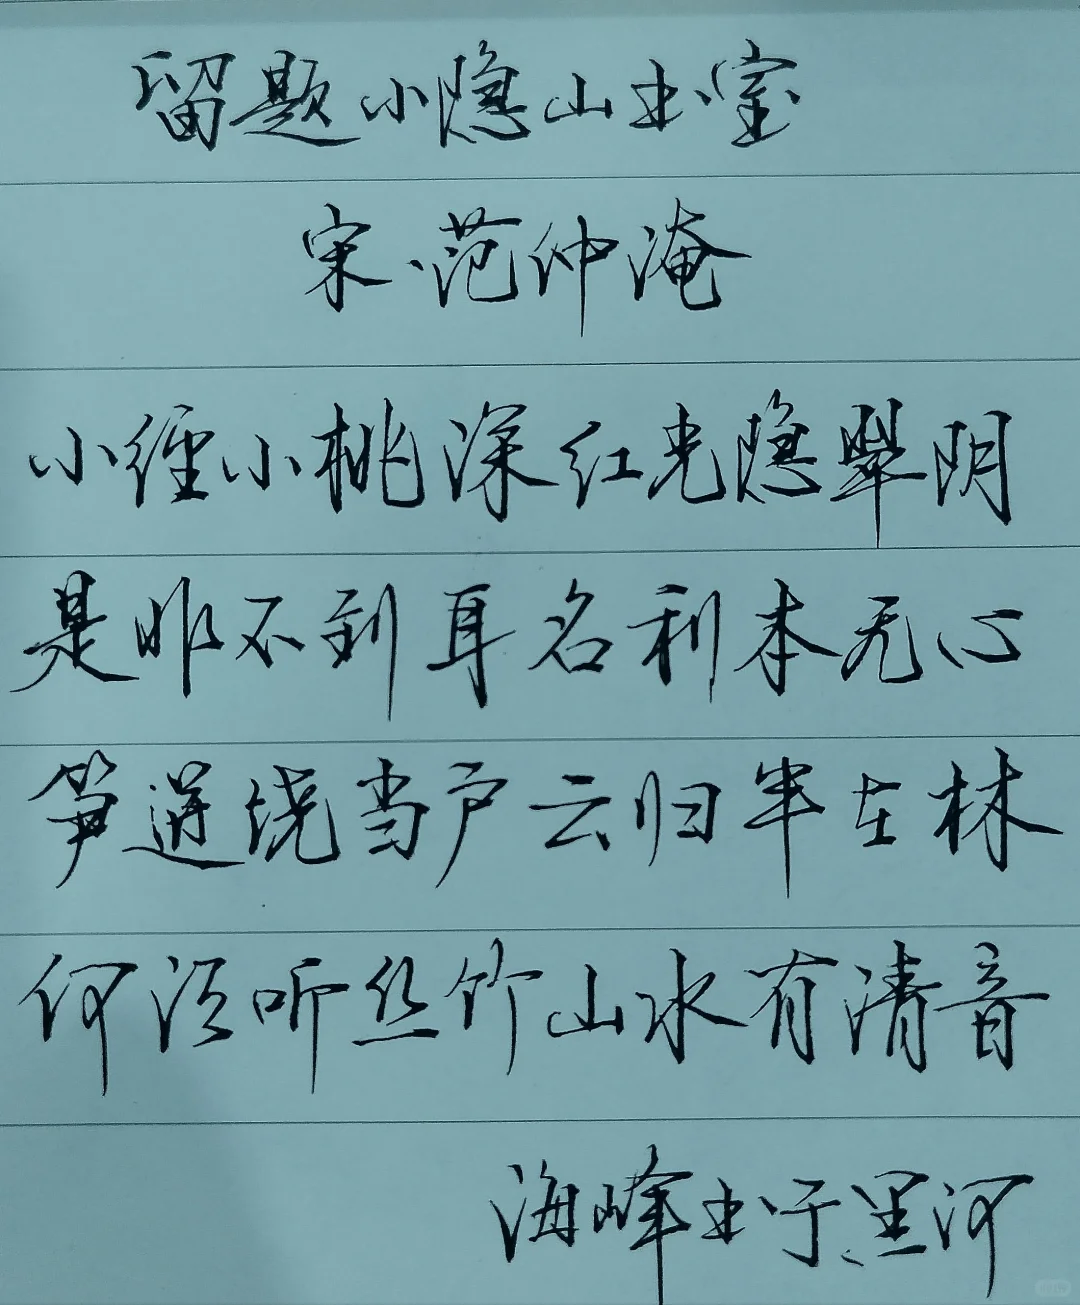 留题小隐山书室
宋·范仲淹
小经小桃深红光隐翠阴
是非不到耳名利本无心
笋迸饶当户云归半在林
何须听丝竹山水有清音
海峰书于黑河